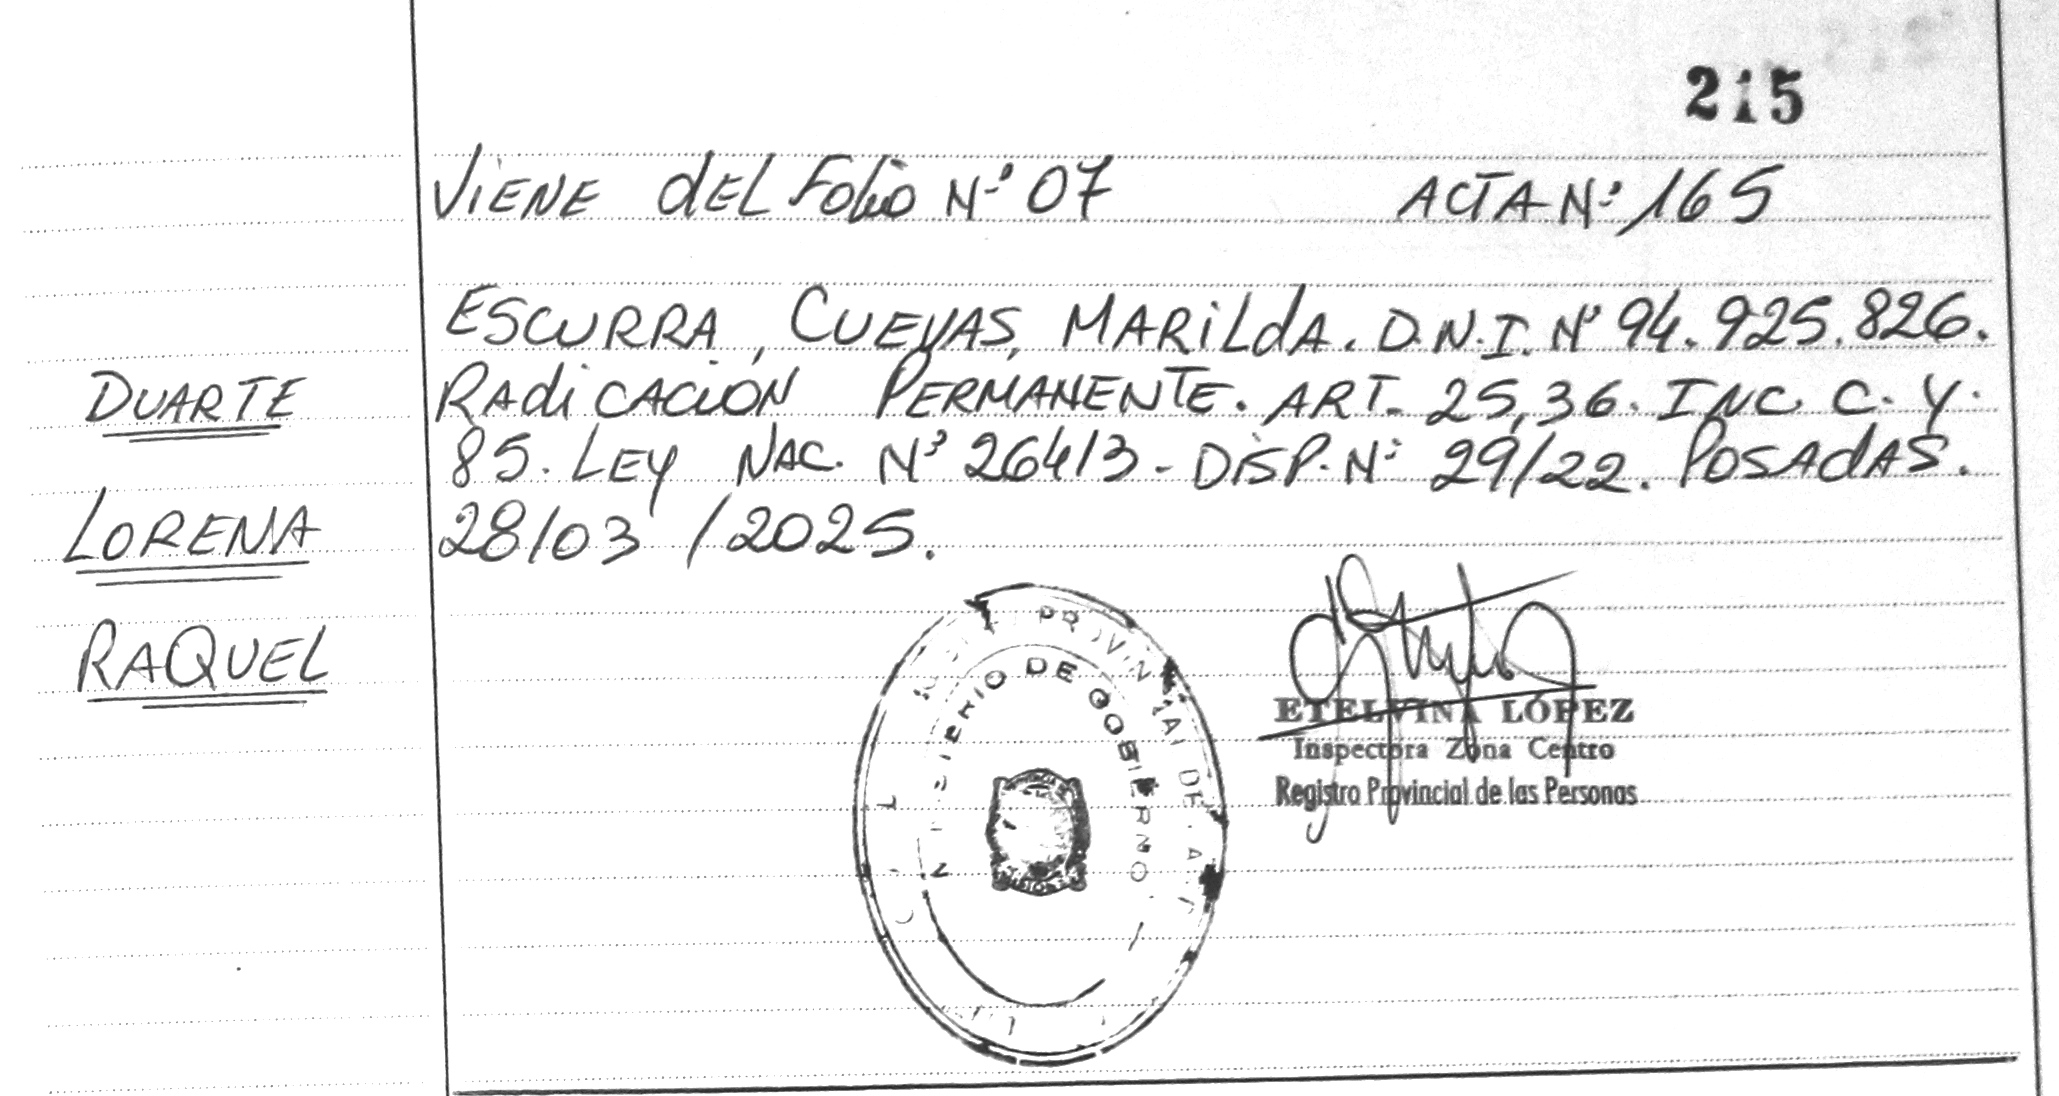 215
VIENE DEL FOLIO Nº 07 ACTA Nº 165
ESCURRA, CUEVAS, MARILDA. D.N.I. Nº 94.925.826.
DUARTE
RADICACIÓN PERMANENTE. ART. 25,36. INC. C. Y.
85. LEY NAC. Nº 26413 - DISP. Nº 29/22. POSADAS.
LORENA
28/03/2025.
RAQUEL
PROVINCIAL DE
MINISTERIO DE GOBIERNO
ETELVINA LÓPEZ
Inspectora Zona Centro
Registro Provincial de las Personas